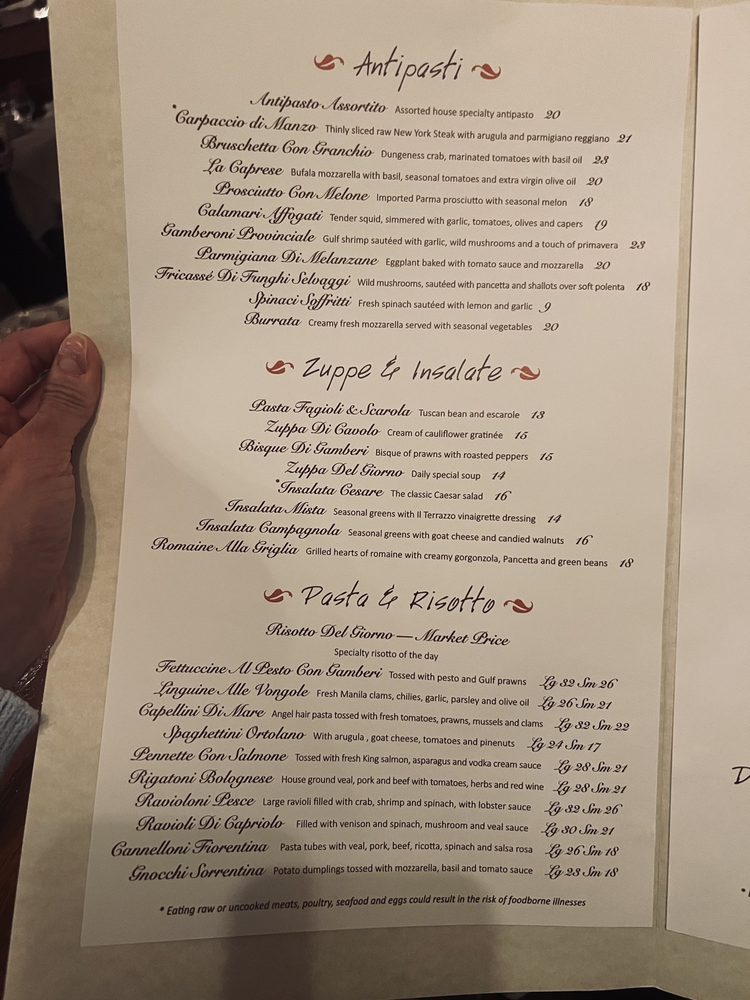 Antipasti
Antipasto Assortito Assorted house specialty antipasto 20
*Carpaccio di Manzo Thinly sliced raw New York Steak with arugula and parmigiano reggiano 21
Bruschetta Con Granchio Dungeness crab, marinated tomatoes with basil oil 23
La Caprese Bufala mozzarella with basil, seasonal tomatoes and extra virgin olive oil 20
Prosciutto Con Melone Imported Parma prosciutto with seasonal melon 18
Calamari Affogati Tender squid, simmered with garlic, tomatoes, olives and capers 19
Gamberoni Provinciale Gulf shrimp sautéed with garlic, wild mushrooms and a touch of primavera 23
Parmigiana Di Melanzane Eggplant baked with tomato sauce and mozzarella 20
Fricassé Di Funghi Selvaggi Wild mushrooms, sautéed with pancetta and shallots over soft polenta 18
Spinaci Soffritti Fresh spinach sautéed with lemon and garlic 9
Burrata Creamy fresh mozzarella served with seasonal vegetables 20
Zuppe & Insalate
Pasta Fagioli & Scarola Tuscan bean and escarole 13
Zuppa Di Cavolo Cream of cauliflower gratinée 15
Bisque Di Gamberi Bisque of prawns with roasted peppers 15
Zuppa Del Giorno Daily special soup 14
*Insalata Cesare The classic Caesar salad 16
Insalata Mista Seasonal greens with Il Terrazzo vinaigrette dressing 14
Insalata Campagnola Seasonal greens with goat cheese and candied walnuts 16
Romaine Alla Griglia Grilled hearts of romaine with creamy gorgonzola, Pancetta and green beans 18
Pasta & Risotto
Risotto Del Giorno — Market Price
Specialty risotto of the day
Fettuccine Al Pesto Con Gamberi Tossed with pesto and Gulf prawns Lg 32 Sm 26
Linguine Alle Vongole Fresh Manila clams, chilies, garlic, parsley and olive oil Lg 26 Sm 21
Capellini Di Mare Angel hair pasta tossed with fresh tomatoes, prawns, mussels and clams Lg 32 Sm 22
Spaghettini Ortolano With arugula , goat cheese, tomatoes and pinenuts Lg 24 Sm 17
Pennette Con Salmone Tossed with fresh King salmon, asparagus and vodka cream sauce Lg 28 Sm 21
Rigatoni Bolognese House ground veal, pork and beef with tomatoes, herbs and red wine Lg 28 Sm 21
Ravioloni Pesce Large ravioli filled with crab, shrimp and spinach, with lobster sauce Lg 32 Sm 26
Ravioli Di Capriolo Filled with venison and spinach, mushroom and veal sauce Lg 30 Sm 21
Cannelloni Fiorentina Pasta tubes with veal, pork, beef, ricotta, spinach and salsa rosa Lg 26 Sm 18
Gnocchi Sorrentina Potato dumplings tossed with mozzarella, basil and tomato sauce Lg 23 Sm 18
* Eating raw or uncooked meats, poultry, seafood and eggs could result in the risk of foodborne illnesses